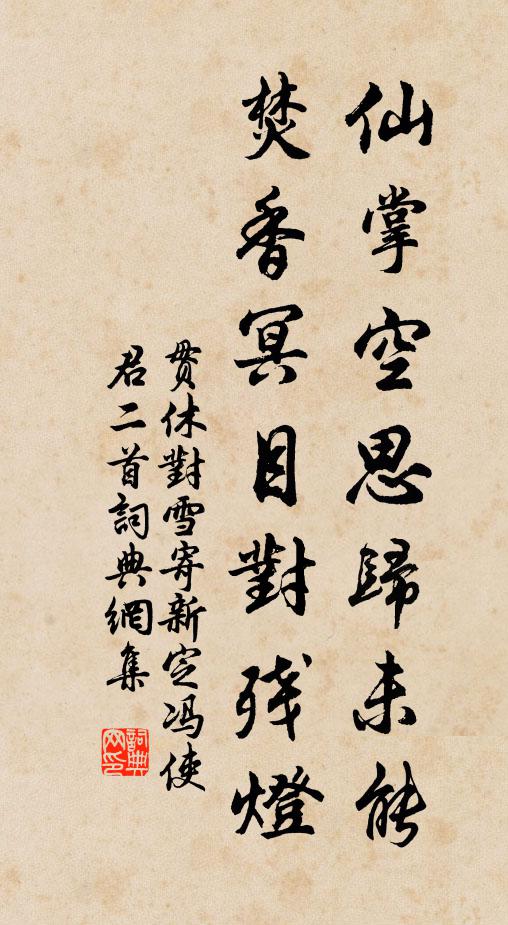 仙掌空思歸未能
焚香冥目對殘燈
貫休對雪寄新定馮使
君二首詞典網集
詞典網印